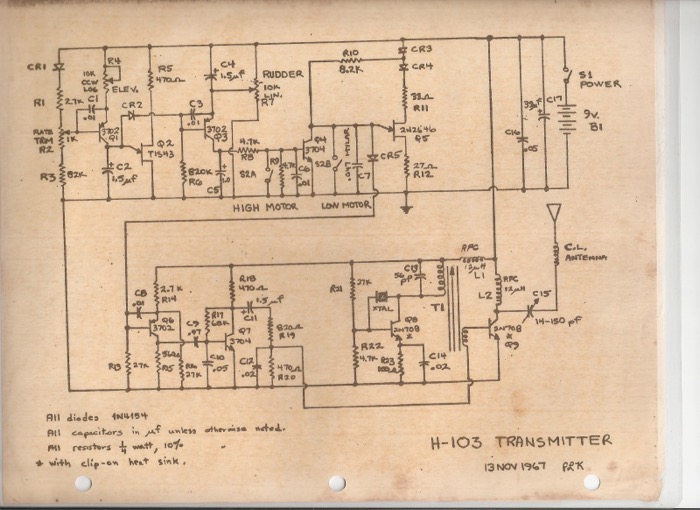 CR1
R4
10K
CCW
LOG
ELEV.
R5
470Ω
C4
1.5μf
RUDDER
10K
LIN.
R7
R10
8.2K
CR3
CR4
33Ω
R11
S1
POWER
9V.
B1
R1
2.7K
C1
.01
CR2
C3
.01
RATE
TRM
R2
1K
3702
Q1
Q2
TIS43
3702
Q3
4.7K
R8
Q4
3704
2N2646
Q5
C16
.05
C17
R3
82K
C2
1.5μf
820K
R6
C5
S2A
R9
C6
.01
S2B
.047 MYLAR
C7
CR5
27Ω
R12
HIGH MOTOR
LOW MOTOR
C.L.
ANTENNA
C8
.01
2.7K
R14
R18
470Ω
1.5μf
C11
R21
27K
C13
56
pf
RFC
L1
T1
RFC
L2
C15
14-150 pf
Q6
3702
C9
R17
68K
Q7
3704
820Ω
R19
XTAL
Q8
2N708
*
2N708
*
Q9
R13
27K
R15
27K
C10
.05
C12
.02
470Ω
R20
R22
4.7K
R23
C14
.02
All diodes 1N4154
All capacitors in μf unless otherwise noted.
All resistors ¼ watt, 10%
* With clip-on heat sink.
H-103 TRANSMITTER
13 NOV 1967